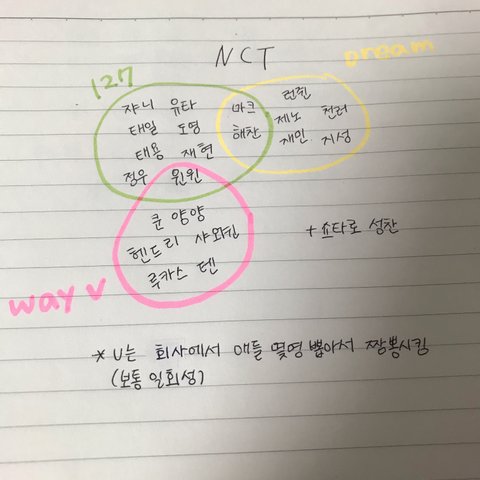 NCT
Dream
127
쟈니 유타
태일 도영
태용 재현
정우 윈윈
마크
해찬
런쥔
제노 천러
재민 지성
쿤 양양
헨드리 샤오쥔
루카스 텐
way v
+ 쇼타로 성찬
* U는 회사에서 애들 몇명 뽑아서 짬뽕시킴
(보통 일회성)